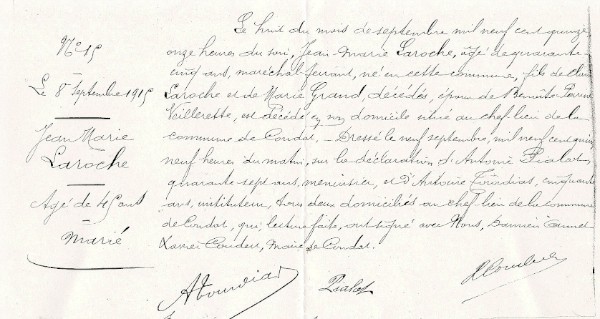 N° 15
Le 8 Septembre 1915
Jean Marie
Laroche
Agé de 45 ans
Marié
Le huit du mois de septembre mil neuf cent quinze
onze heures du soir, Jean-Marie Laroche, âgé de quarante
cinq ans, maréchal-ferrant, né en cette commune, fils de
Laroche et de Marie Grand, décédés, époux de Benoîte
Veillerette, est décédé en son domicile situé au chef lieu de la
commune de Condat. – Dressé le neuf septembre, mil neuf cent quinze
neuf heures du matin, sur la déclaration d'Antoine Pialat
quarante sept ans, menuisier, et d'Antoine cinquante
ans, instituteur, tous deux domiciliés au chef lieu de la commune
de Condat, qui, lecture faite, ont signé avec Nous,
Maire de Condat.
Pialat